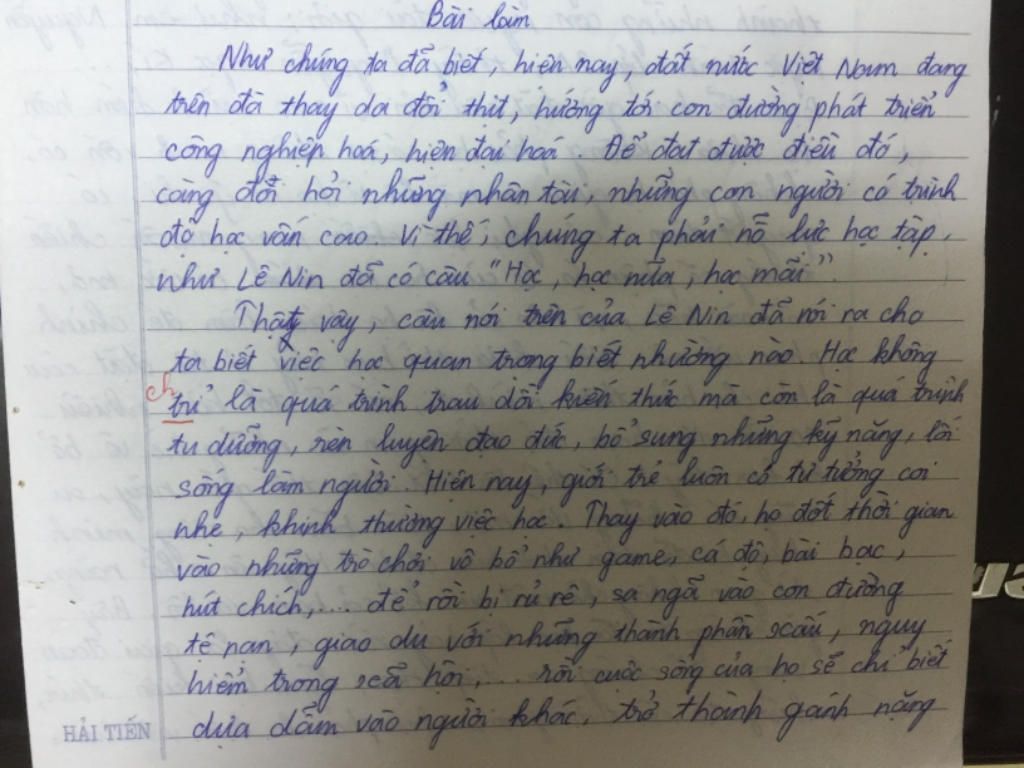 Bài làm
Như chúng ta đã biết, hiện nay, đất nước Việt Nam đang
trên đà thay da đổi thịt, hướng tới con đường phát triển
công nghiệp hoá, hiện đại hoá. Để đạt được điều đó,
càng đổi hỏi những nhân tài, những con người có trình
độ học vấn cao. Vì thế, chúng ta phải nỗ lực học tập,
như Lê Nin đã có câu "Học, học nữa, học mãi".
Thật vậy, câu nói trên của Lê Nin đã nói ra cho
ta biết việc học quan trọng biết nhường nào. Học không
ch
trỉ là quá trình trau dồi kiến thức mà còn là quá trình
tu dưỡng, rèn luyện đạo đức, bổ sung những kỹ năng, lối
sống làm người. Hiện nay, giới trẻ luôn có tư tưởng coi
nhẹ, khinh thường việc học. Thay vào đó, họ đốt thời gian
vào những trò chơi vô bổ như game, cá độ, bài bạc,
hút chích,... để rồi bị rủ rê, sa ngã vào con đường
tệ nạn, giao du với những thành phần xấu, nguy
hiểm trong xã hội,... rồi cuộc sống của họ sẽ chỉ biết
dựa dẫm vào người khác, trở thành gánh nặng
HẢI TIẾN